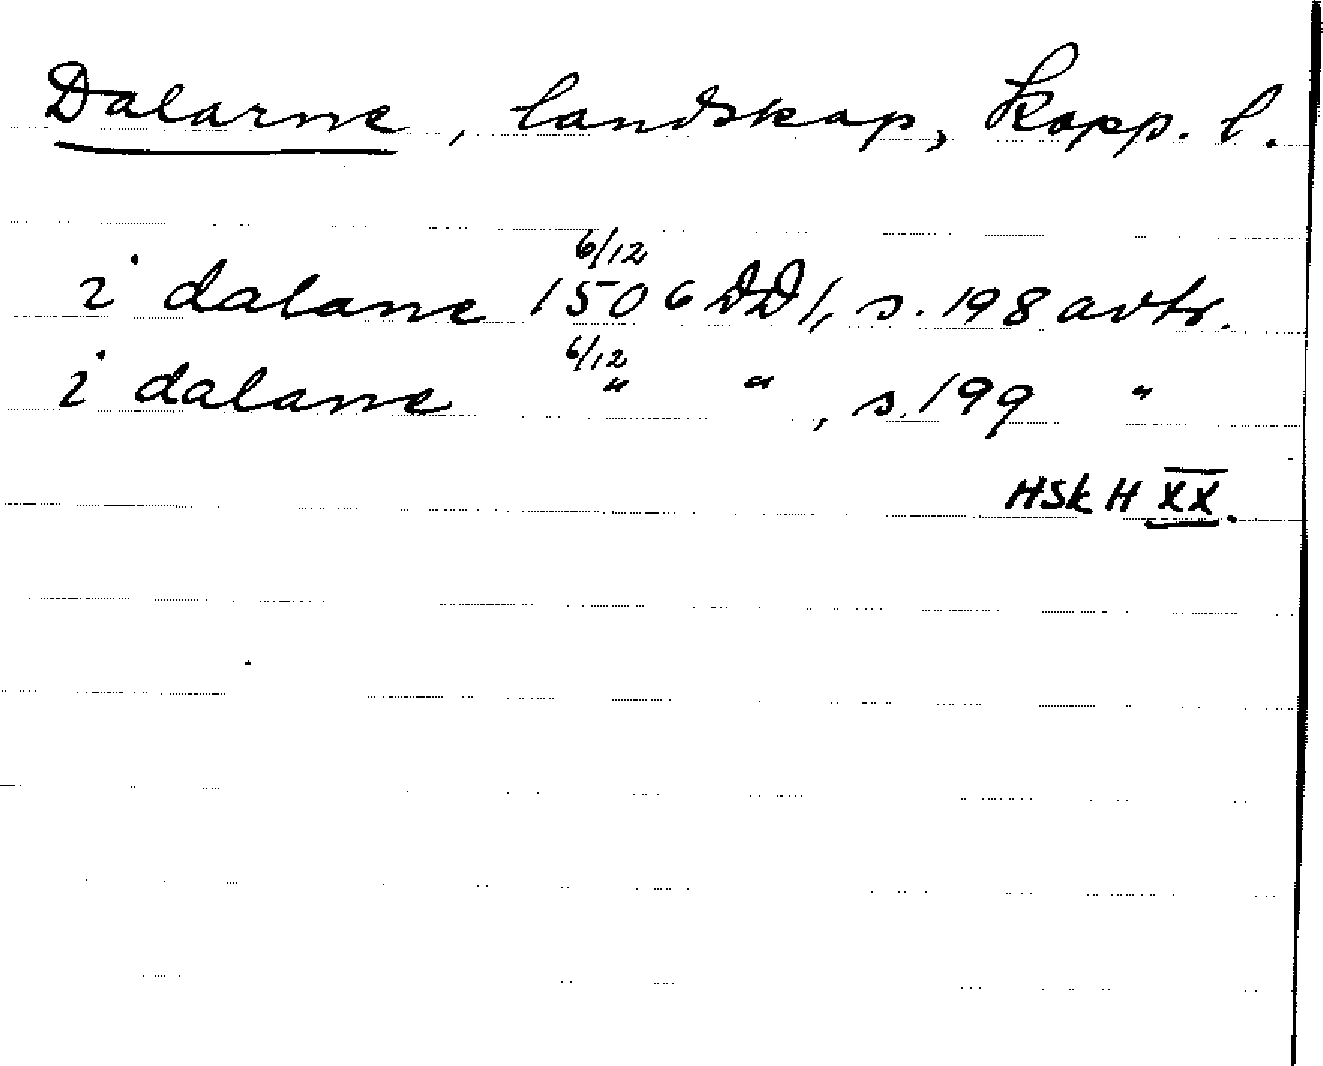 Dalarne, landskap, Kopp. l.
i dalane 6/12 1506 DD 1, s. 198 avtr.
i dalane 6/12 " " , s. 199 "
HSkH XX.